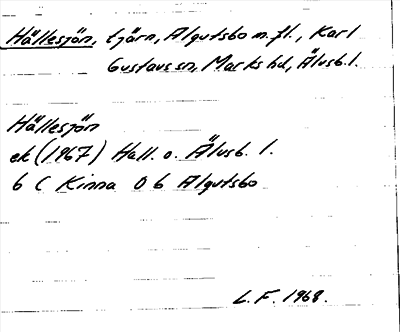 Hällesjön, tjärn, Algutsbo m. fl., Karl
Gustavs sn, Marks hd, Älvsb. l.
Hällesjön
ek (1967) Hall. o. Älvsb. l.
6 C Kinna 0 b Algutsbo
L. F. 1968.